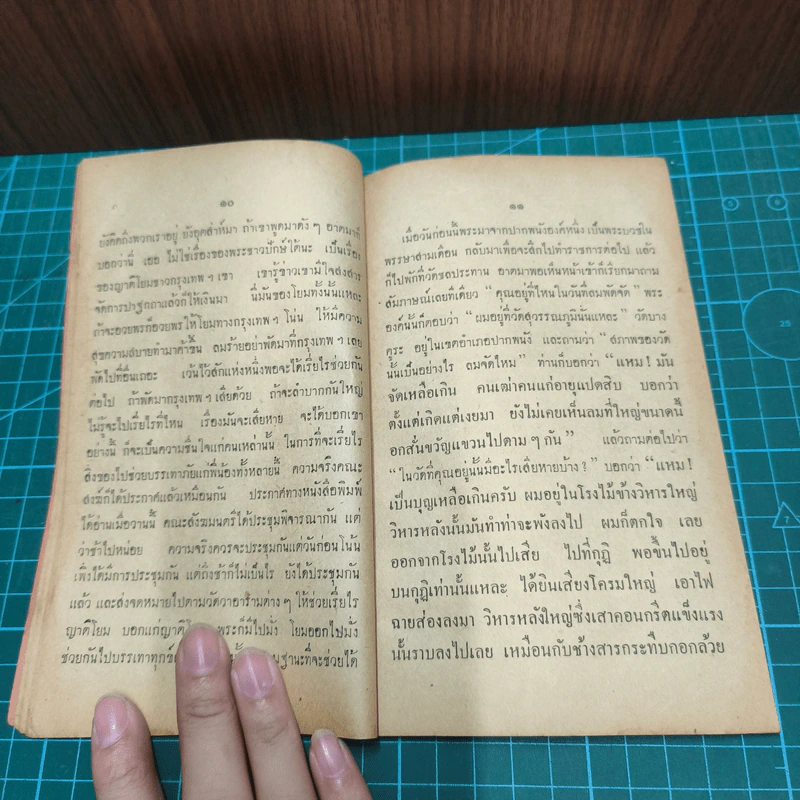 ๑๐
ยังคิดถึงพวกเราอยู่ ยังอุตส่าห์มา ถ้าเขาพูดมาดัง ๆ อาตมาก็
บอกว่านี่ เออ ไม่ใช่เรื่องของพระชาวปักษ์ใต้นะ เป็นเรื่อง
ของญาติโยมชาวกรุงเทพ ฯ เขา เขารู้ข่าวเขามีใจส่งสาร
จัดการปาฐกถาแล้วก็ให้เงินมา นี่มันของโยมทั้งนั้นแหละ
ถ้าจะอวยพรก็อวยพรให้โยมทางกรุงเทพ ฯ โน่น ให้มีความ
สุขความสบายทำมาค้าขึ้น ลมร้ายอย่าพัดมาที่กรุงเทพ ฯ เลย
พัดไปที่อื่นเถอะ เว้นไว้สักแห่งหนึ่งพอจะได้เรี่ยไรช่วยกัน
ต่อไป ถ้าพัดมากรุงเทพ ฯ เสียด้วย ถ้าจะลำบากกันใหญ่
ไม่รู้จะไปเรี่ยไรที่ไหน เรื่องมันจะเสียหาย จะได้บอกเขา
อย่างนี้ ก็จะเป็นความชื่นใจแก่คนเหล่านั้น ในการที่จะเรี่ยไร
สิ่งของไปช่วยบรรเทาภัยแก่พี่น้องทั้งหลายนี้ ความจริงคณะ
สงฆ์ก็ได้ประกาศแล้วเหมือนกัน ประกาศทางหนังสือพิมพ์
ได้อ่านเมื่อวานนี้ คณะสังฆมนตรีได้ประชุมพิจารณากัน แต่
ว่าช้าไปหน่อย ความจริงควรจะประชุมกันแต่วันก่อนโน้น
เพิ่งได้มีการประชุมกัน แต่ถึงช้าก็ไม่เป็นไร ยังได้ประชุมกัน
แล้ว และส่งจดหมายไปตามวัดวาอารามต่าง ๆ ให้ช่วยเรี่ยไร
ญาติโยม บอกแก่ญาติโยม พระก็มีไปมั่ง โยมออกไปมั่ง
ช่วยกันไปบรรเทาทุกข์ ฐานะที่จะช่วยได้
๑๑
เมื่อวันก่อนนี้พระมาจากปากพนังองค์หนึ่ง เป็นพระบวชใน
พรรษาสามเดือน กลับมาเพื่อจะสึกไปทำราชการต่อไป แล้ว
ก็ไปพักที่วัดชลประทาน อาตมาพอเห็นหน้าเข้าก็เรียกมาถาม
สัมภาษณ์เลยทีเดียว “ คุณอยู่ที่ไหนในวันที่ลมพัดจัด ” พระ
องค์นั้นก็ตอบว่า “ ผมอยู่ที่วัดสุวรรณภูมินั่นแหละ ” วัดบาง
คุระ อยู่ในเขตอำเภอปากพนัง และถามว่า “ สภาพของวัด
นั้นเป็นอย่างไร ลมจัดไหม ” ท่านก็บอกว่า “ แหม ! มัน
จัดเหลือเกิน คนเฒ่าคนแก่อายุแปดสิบ บอกว่า
ตั้งแต่เกิดแต่เงยมา ยังไม่เคยเห็นลมที่ใหญ่ขนาดนี้
อกสั่นขวัญแขวนไปตาม ๆ กัน ” แล้วถามต่อไปว่า
“ ในวัดที่คุณอยู่นั้นมีอะไรเสียหายบ้าง ? ” บอกว่า “ แหม !
เป็นบุญเหลือเกินครับ ผมอยู่ในโรงไม้ข้างวิหารใหญ่
วิหารหลังนั้นมันทำท่าจะพังลงไป ผมก็ตกใจ เลย
ออกจากโรงไม้นั้นไปเสีย ไปที่กุฏิ พอขึ้นไปอยู่
บนกุฏิเท่านั้นแหละ ได้ยินเสียงโครมใหญ่ เอาไฟ
ฉายส่องลงมา วิหารหลังใหญ่ซึ่งเสาคอนกรีตแข็งแรง
นั้นราบลงไปเลย เหมือนกับช้างสารกระทืบกอกล้วย
25
7